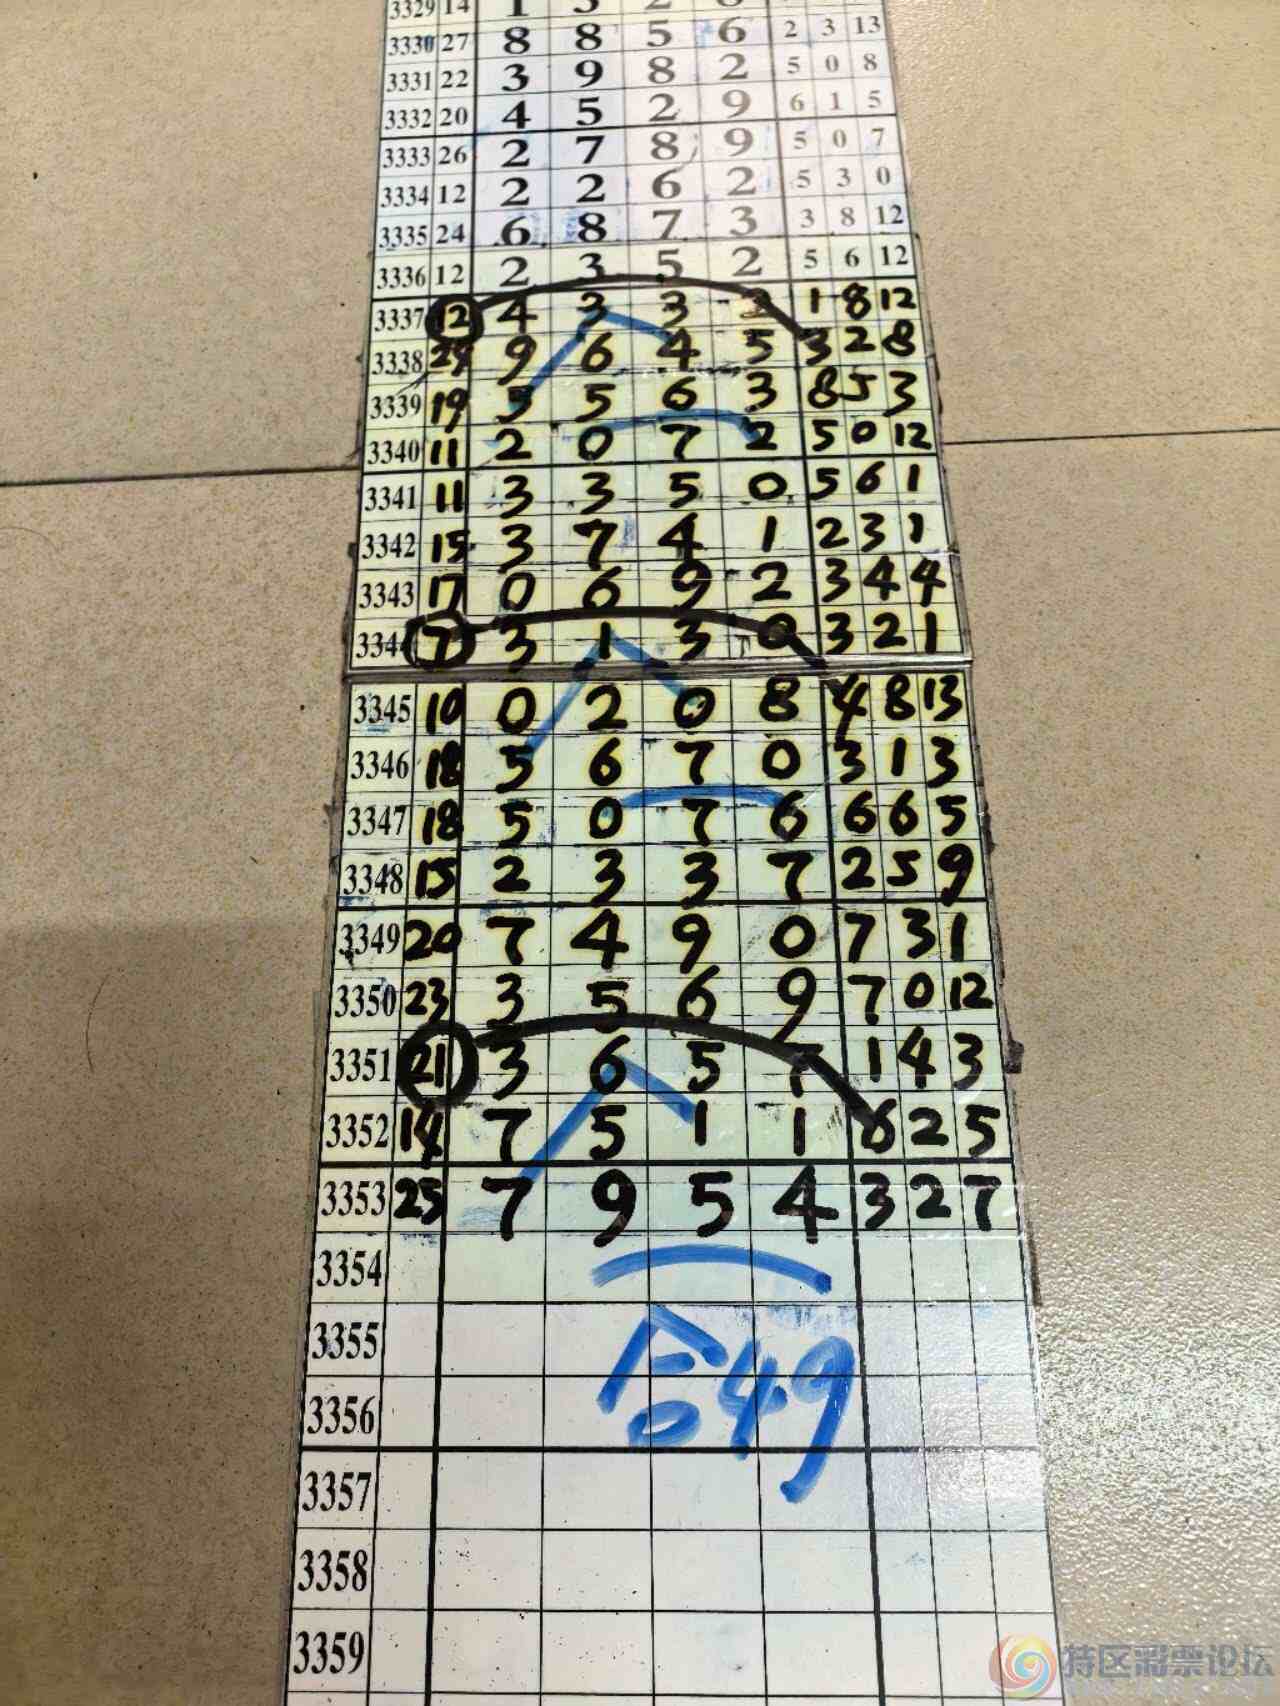 3329 14 1 3 2
3330 27 8 8 5 6 2 3 13
3331 22 3 9 8 2 5 0 8
3332 20 4 5 2 9 6 1 5
3333 26 2 7 8 9 5 0 7
3334 12 2 2 6 2 5 3 0
3335 24 6 8 7 3 3 8 12
3336 12 2 3 5 2 5 6 12
3337 12 4 3 3 2 1 8 12
3338 24 9 6 4 5 3 2 8
3339 19 5 5 6 3 8 5 3
3340 11 2 0 7 2 5 0 12
3341 11 3 3 5 0 5 6 1
3342 15 3 7 4 1 2 3 1
3343 17 0 6 9 2 3 4 4
3344 7 3 1 3 0 3 2 1
3345 10 0 2 0 8 4 8 13
3346 18 5 6 7 0 3 1 3
3347 18 5 0 7 6 6 6 5
3348 15 2 3 3 7 2 5 9
3349 20 7 4 9 0 7 3 1
3350 23 3 5 6 9 7 0 12
3351 21 3 6 5 7 1 4 3
3352 14 7 5 1 1 6 2 5
3353 25 7 9 5 4 3 2 7
3354
3355
合49
3356
3357
3358
3359
特区彩票论坛